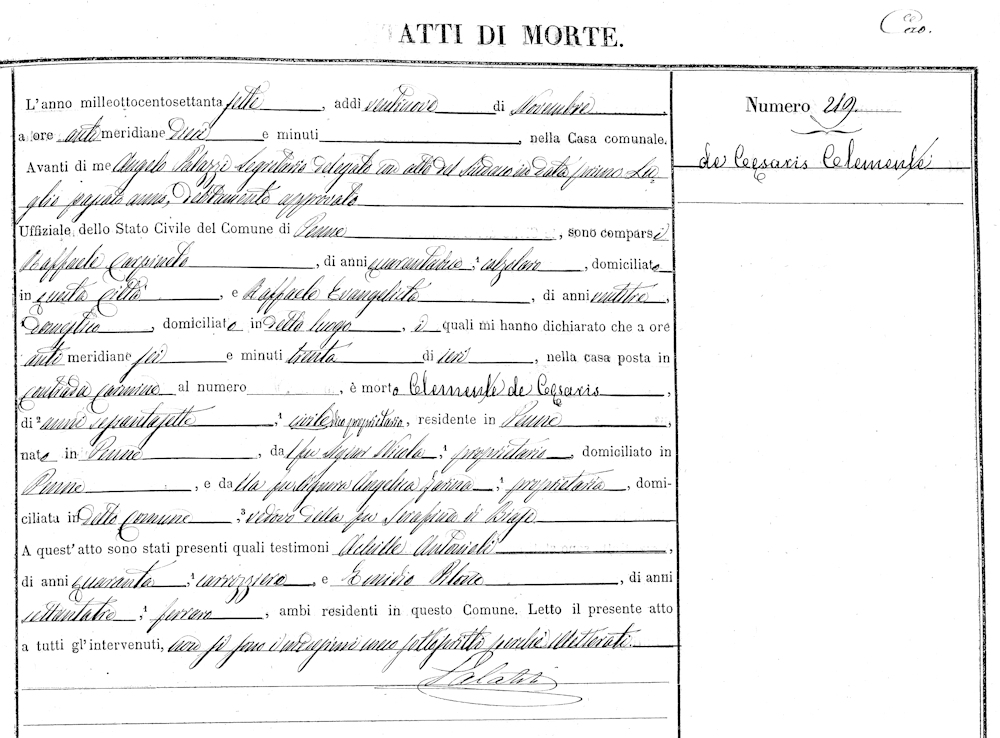 ATTI DI MORTE.
Numero 219.
de Cesaris Clemente
L'anno milleottocentosettanta sette, addì ventinove di Novembre
a ore anti meridiane dieci e minuti, nella Casa comunale.
Avanti di me Angelo Palazzi Segretario delegato con atto del Sindaco in data primo Lu-
glio anno, debitamente approvato
Uffiziale dello Stato Civile del Comune di Penne, sono comparsi
Raffaele Carpineto, di anni, calzolaro, domiciliato
in questa Città, e Raffaele Evangelista, di anni,
, domiciliato in detto luogo, i quali mi hanno dichiarato che a ore
anti meridiane sei e minuti trenta di ieri, nella casa posta in
Contrada Carmine al numero, è morto Clemente de Cesaris,
di anni sessantasette, civile proprietario, residente in Penne,
nato in Penne, dal fu Signor Nicola, proprietario, domiciliato in
Penne, e dalla fu Signora Angelica Farina, proprietaria, domi-
ciliata in detto Comune, vedovo della fu Serafina di Biase
A quest'atto sono stati presenti quali testimoni Achille Antonioli,
di anni quaranta, carrozziero, e Emidio, di anni
settantatre, ferraro, ambi residenti in questo Comune. Letto il presente atto
a tutti gl'intervenuti, si sono sottoscritti perchè illetterati.